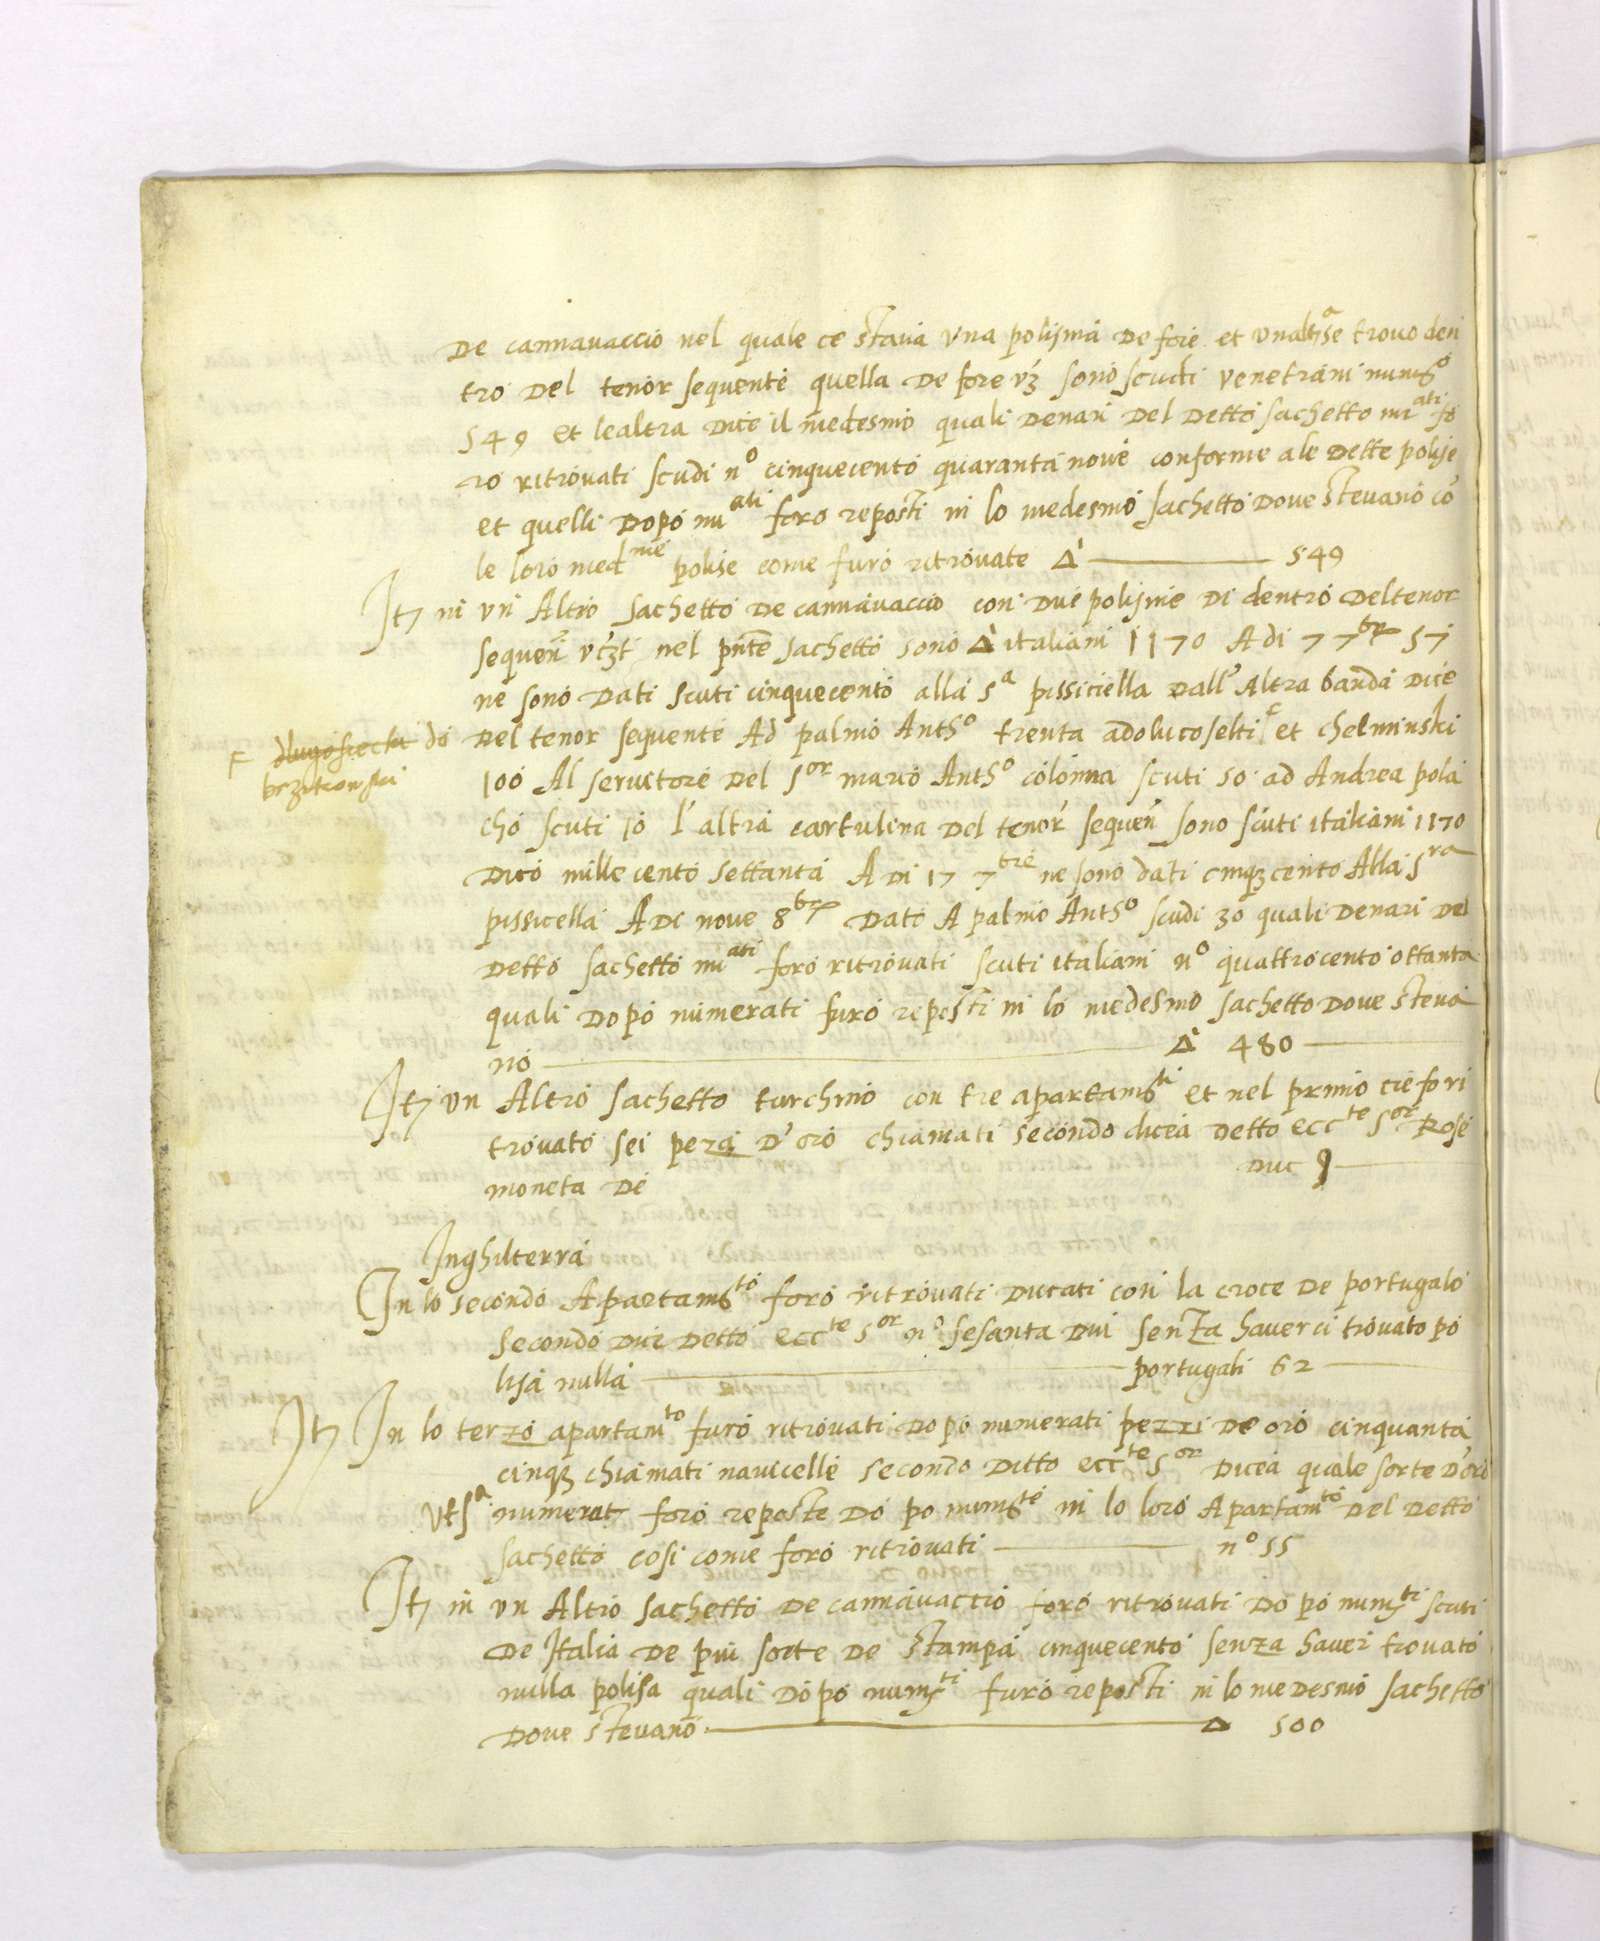 De cannauaccio nel quale ce staua una polisina De fore et unaltra se trouo den
tro Del tenor sequente quella De fore vz sono scudi venetiani numero
549 et lealtra Dice il medesmo quali Denari Del Detto sachetto nu ati fo
ro ritrouati scudi no cinquecento quaranta noue conforme a le Dette polise
et quelli Dopo nu ati foro reposti in lo medesmo sachetto Doue steuano co
le loro med me polise come furo ritrouate Δ 549
It in un Altro sachetto De cannauaccio con Due polisine Di dentro Del tenor
sequen vzt nel pnte sachetto sono Δ italiani 1170 A di 7 7bre 57
ne sono Dati scuti cinquecento alla Sa pissiciella Dall'Altra banda Dice
F dlugosecki do
brzikowski
Del tenor sequente Ad palmo Antho trenta adolucoselti F et chelminski
100 Al seruitore Del Sor mario Antho colonna scuti 50 ad Andrea pola
cho scuti 10 l'altra cartulina Del tenor sequen sono scuti italiani 1170
Dico mille cento settanta A Di 17 7bre ne sono dati cinq cento Alla Sra
pissicella A Di noue 8bre Dato A palmo Antho scudi 30 quali Denari Del
Detto sachetto nu ati foro ritrouati scuti italiani no quattrocento ottanta
quali Dopo numerati furo reposti in lo medesmo sachetto Doue steua
no Δ 480
It un Altro sachetto turchino con tre apartamti et nel primo cie fo ri
trouato sei pezzi D'oro chiamati secondo dicea Detto eccte Sor Rose
moneta De Duc 9
Inghilterra
In lo secondo Apartamto foro ritrouati Ducati con la croce De portugalo
secondo Dice Detto eccte Sor no sesanta Dui senza hauerci trouato po
lisa nulla portugali 62
It In lo terzo apartamto furo ritrouati Dopo numerati pezzi De oro cinquanta
cinq chiamati nauicelle secondo Ditto eccte Sor Dicea quale sorte D'oro
Vt sa numerat foro reposte Do po numte in lo loro Apartamto Del Detto
sachetto cosi come foro ritrouati no 55
It in un Altro sachetto De cannauaccio foro ritrouati Do po numti scuti
De Italia De piu sorte De stampa cinquecento senza hauer trouato
nulla polisa quali Dopo numti furo reposti in lo medesmo sachetto
Doue steuano Δ 500